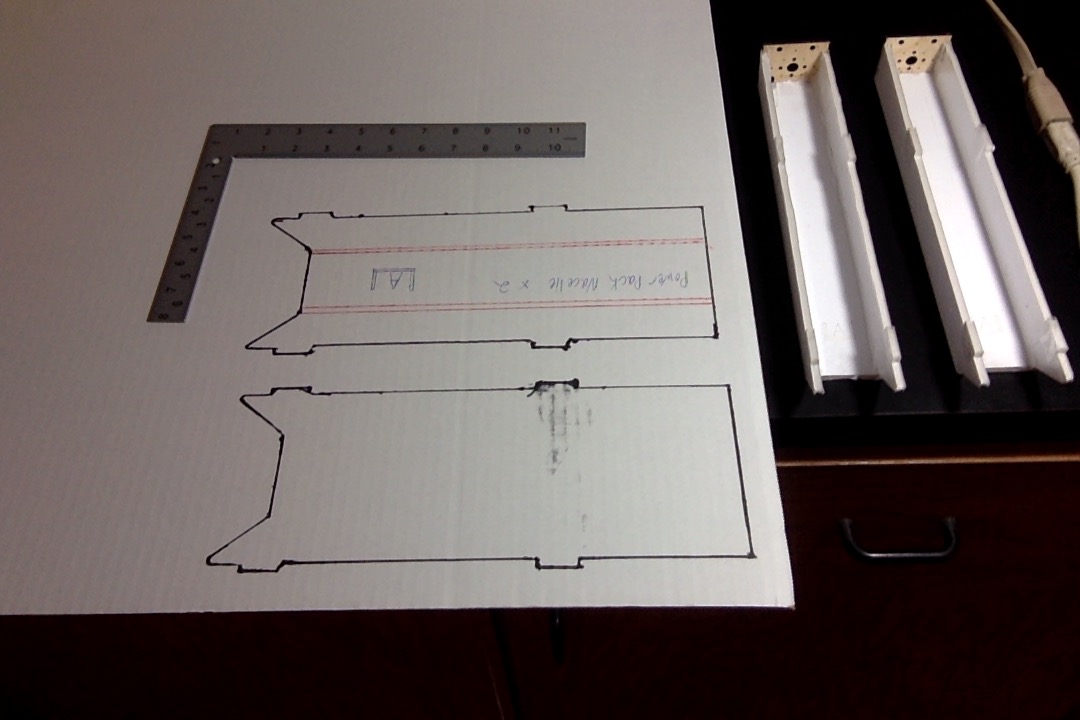 1 2 3 4 5 6 7 8 9 10 11
1 2 3 4 5 6 7 8 9 10
1 2 3 4 5 6 7 8
1 2 3 4 5 6
Power Pack Nacelle x 2
A